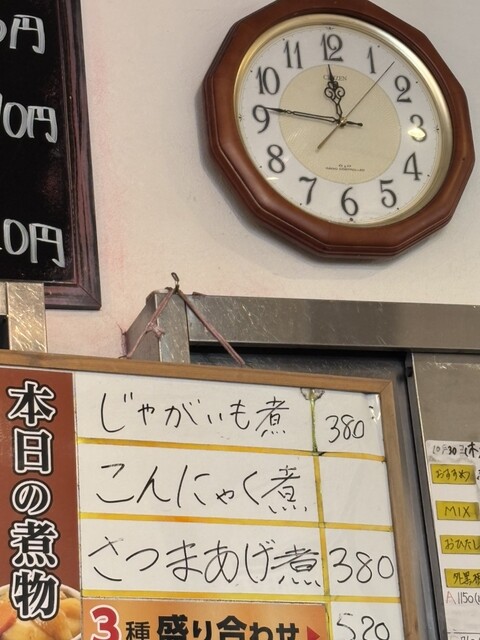 円
0円
0円
12
1
2
3
4
5
6
7
8
9
10
11
CITIZEN
本日の煮物
じゃがいも煮 380
こんにゃく煮
さつまあげ煮 380
3種盛り合わせ 520
10月30日(木)
おすすめ
MIX
おひたし